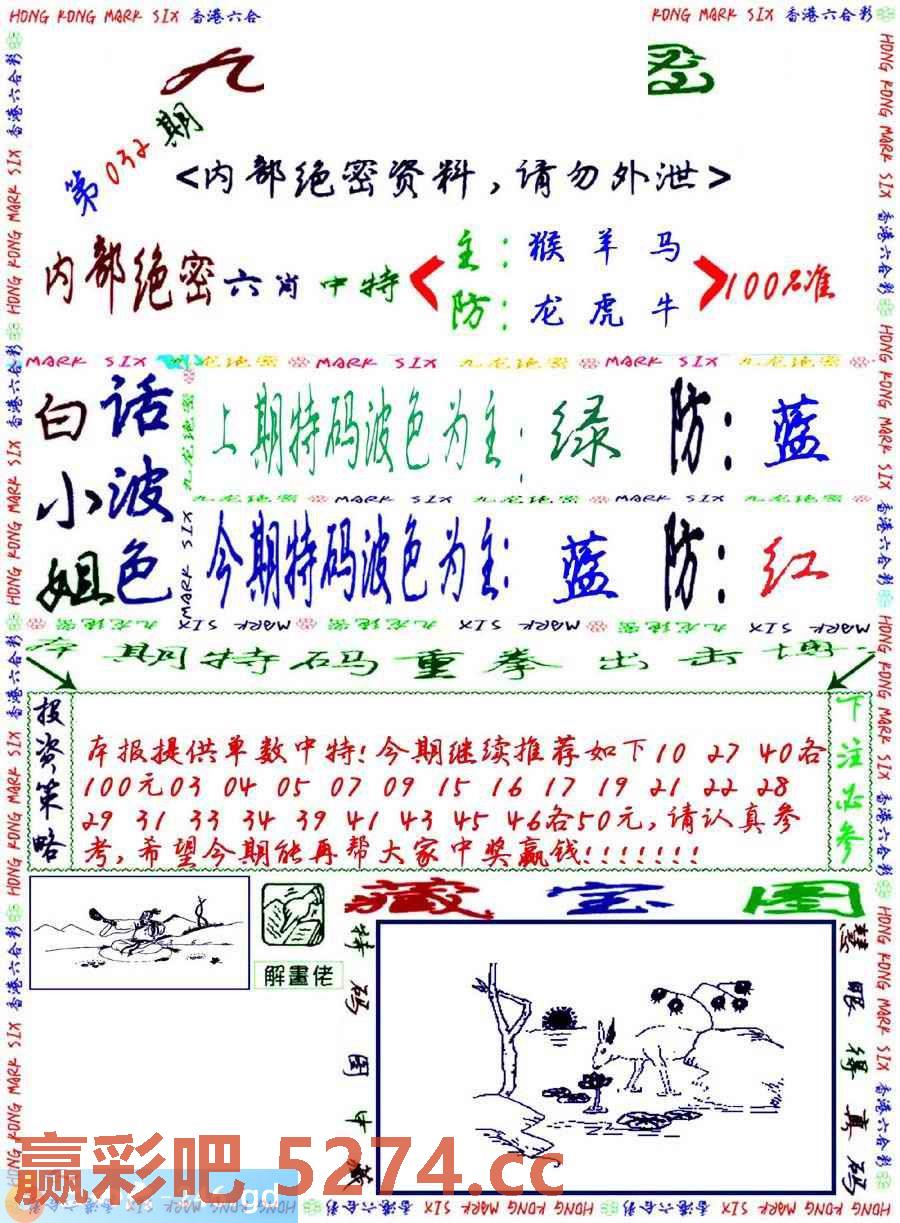 HONG KONG MARK SIX 香港六合
KONG MARK SIX 香港六合彩
九
第032期
<内部绝密资料,请勿外泄>
内部绝密六肖中特
主:猴羊马
防:龙虎牛
100%准
MARK SIX 九龙绝密 MARK SIX 九龙绝密 MARK SIX 九龙绝密
白话小波姐色
上期特码波色为主:绿 防:蓝
九龙绝密 MARK SIX 九龙绝密 MARK SIX
今期特码波色为主:蓝 防:红
九龙绝密 MARK SIX 九龙绝密 MARK SIX 九龙绝密 MARK SIX
本期特码重拳出击博
投资策略
本报提供单数中特!今期继续推荐如下10 27 40各
100元03 04 05 07 09 15 16 17 19 21 22 28
29 31 33 34 39 41 43 45 46各50元,请认真参
考,希望今期能再帮大家中奖赢钱!!!!!!!
下注必参
藏宝图
解畫佬
特码图中藏
慧眼得真码
赢彩吧 5274.cc
HONG KONG MARK SIX 香港六合彩